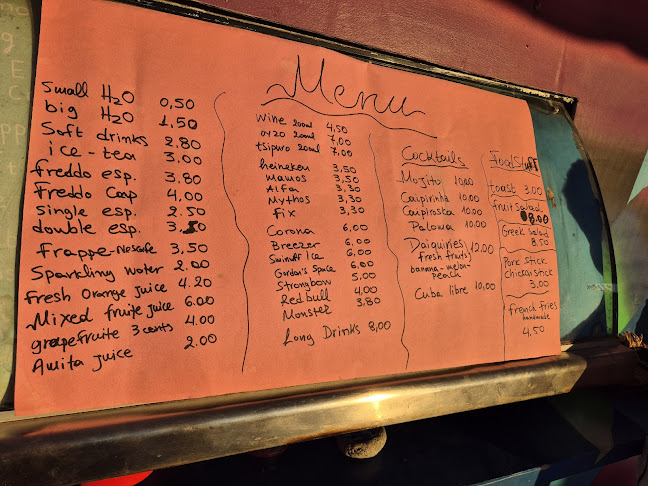 Menu
Small H2O 0,50
big H2O 1,50
Soft drinks 2.80
ice-tea 3.00
freddo esp. 3.80
Freddo Cap 4,00
single esp. 2.50
double esp.
Frappe-Nescafe 3,50
Sparkling water 2.00
fresh Orange juice 4.20
Mixed fruite juice 6.00
grapefruite 3 cents 4.00
Amita juice 2.00
Wine 200ml 4,50
oyzo 200ml 7,00
tsipuro 200ml 7,00
heineken 3,50
mamos 3,50
Alfa 3,30
Mythos 3,30
Fix 3,30
Corona 6,00
Breezer 6,00
Ice 6,00
Gordon's Space 6,00
Strongbow 5,00
Redbull 4,00
Monster 3.80
Long Drinks 8,00
Cocktails
Mojito 10,00
Caipirinha 10,00
Caipiroska 10,00
Paloma 10,00
Daiquiries 12,00
fresh fruits
banana-melon-
peach
Cuba libre 10,00
Food Stuff
toast 3,00
fruit Salad
8.00
Greek salad
8.50
Pork Stick
Chicken stick
3,00
french fries
handmade
4.50